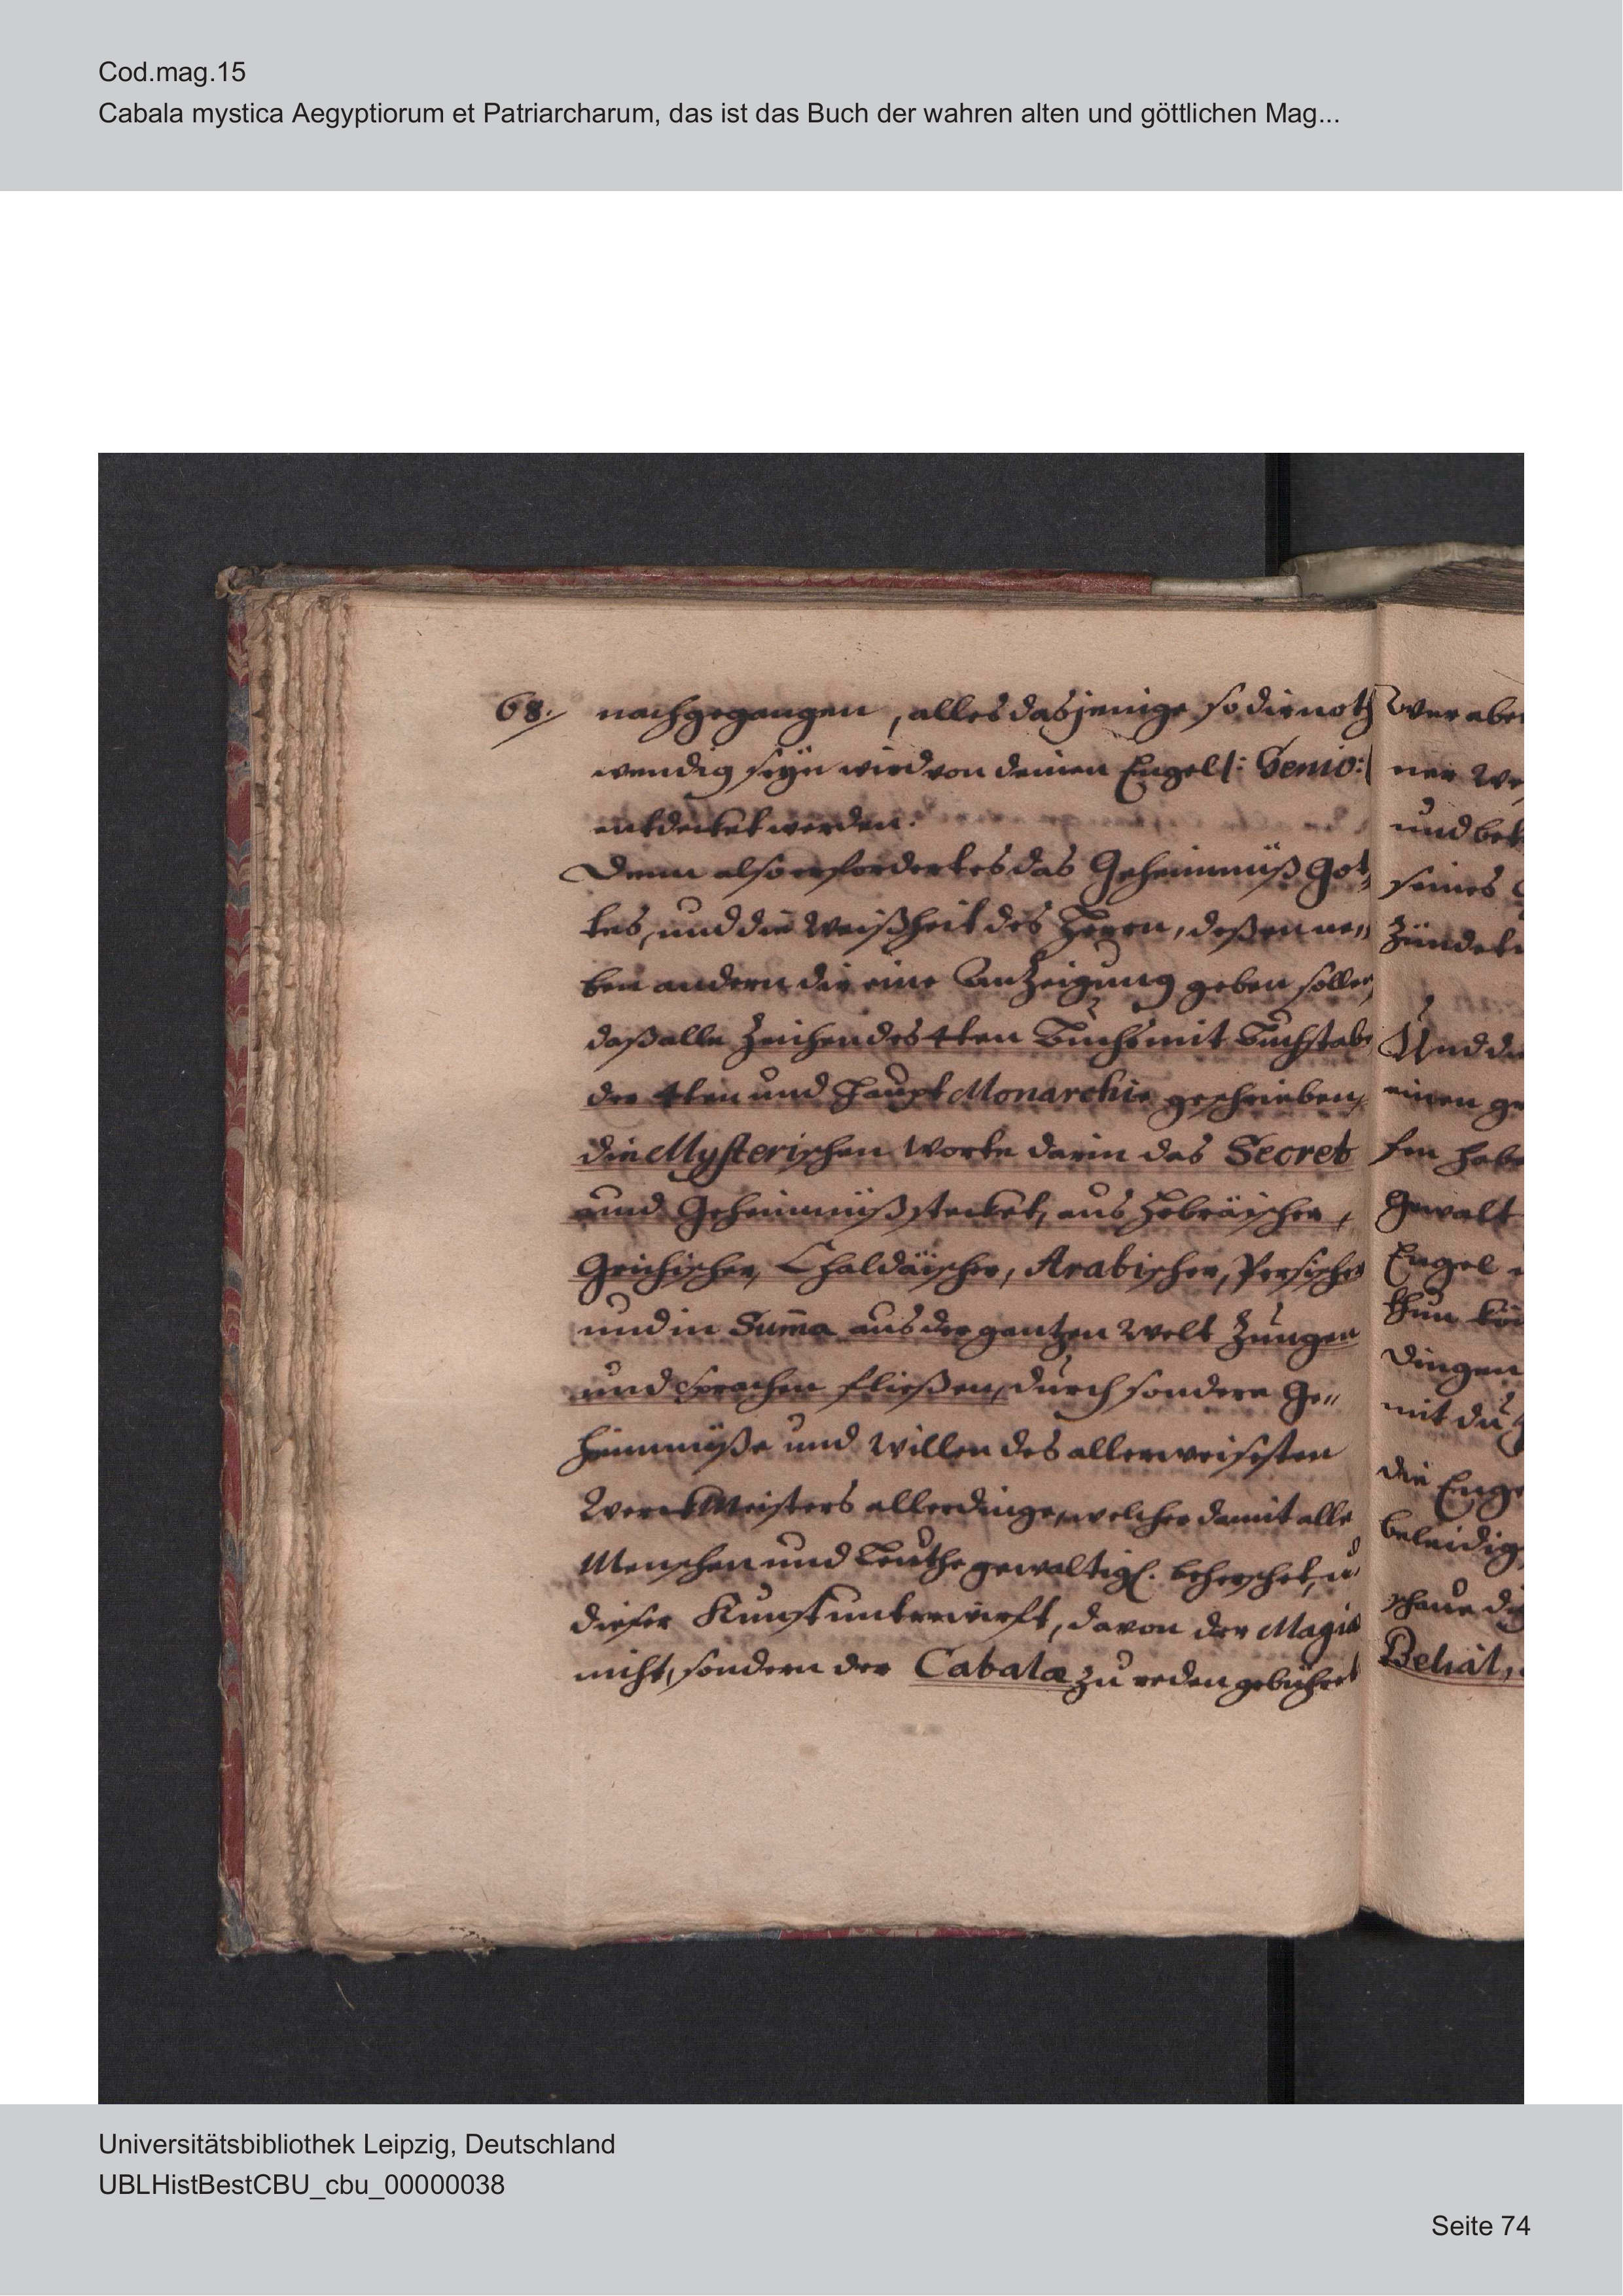 Cod.mag.15
Cabala mystica Aegyptiorum et Patriarcharum, das ist das Buch der wahren alten und göttlichen Mag...
68. nachgegangen, alles dasjenige so dir noth
wendig seÿn wird von deinen Engel |: Genio :|
entdecket werden.
Denn also erfordert es das Geheimnüß Got,
tes, und die Weißheit des Herrn, deßen ne„
ben andern dir eine Anzeigung geben sollen,
daß alle Zeichen des 4ten Buchs mit Buchstab,
der 4ten und Haupt Monarchie geschrieben,
die Mysterischen Worte darin das Secret
und Geheimnüß stecket, aus Hebräischer,
Grichischer, Chaldäischer, Arabischer, Persischer
und in Sum̄a aus der gantzen Welt Zungen
und Sprachen fließen, durch sondere Ge„
heimnüße und Willen des allerweisesten
Werckmeisters allerdinge, welcher damit alle
Menschen und Leuthe gewaltigl. beherschet, u
dieser Kunst unterwirft, davon der Magia
nicht, sondern der Cabala zu reden gebühret
Wer aber
ner We
und bek
seines
zündet
Und di
einen ge
sen habe
Gewalt
Engel
thun kön
Dingen
mit du
die Enge
beleidig
schaue di
Belial,
Universitätsbibliothek Leipzig, Deutschland
UBLHistBestCBU_cbu_00000038
Seite 74